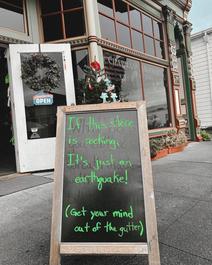 OPEN
If this store
is rocking,
It's just an
earthquake!
(Get your mind
out of the gutter)